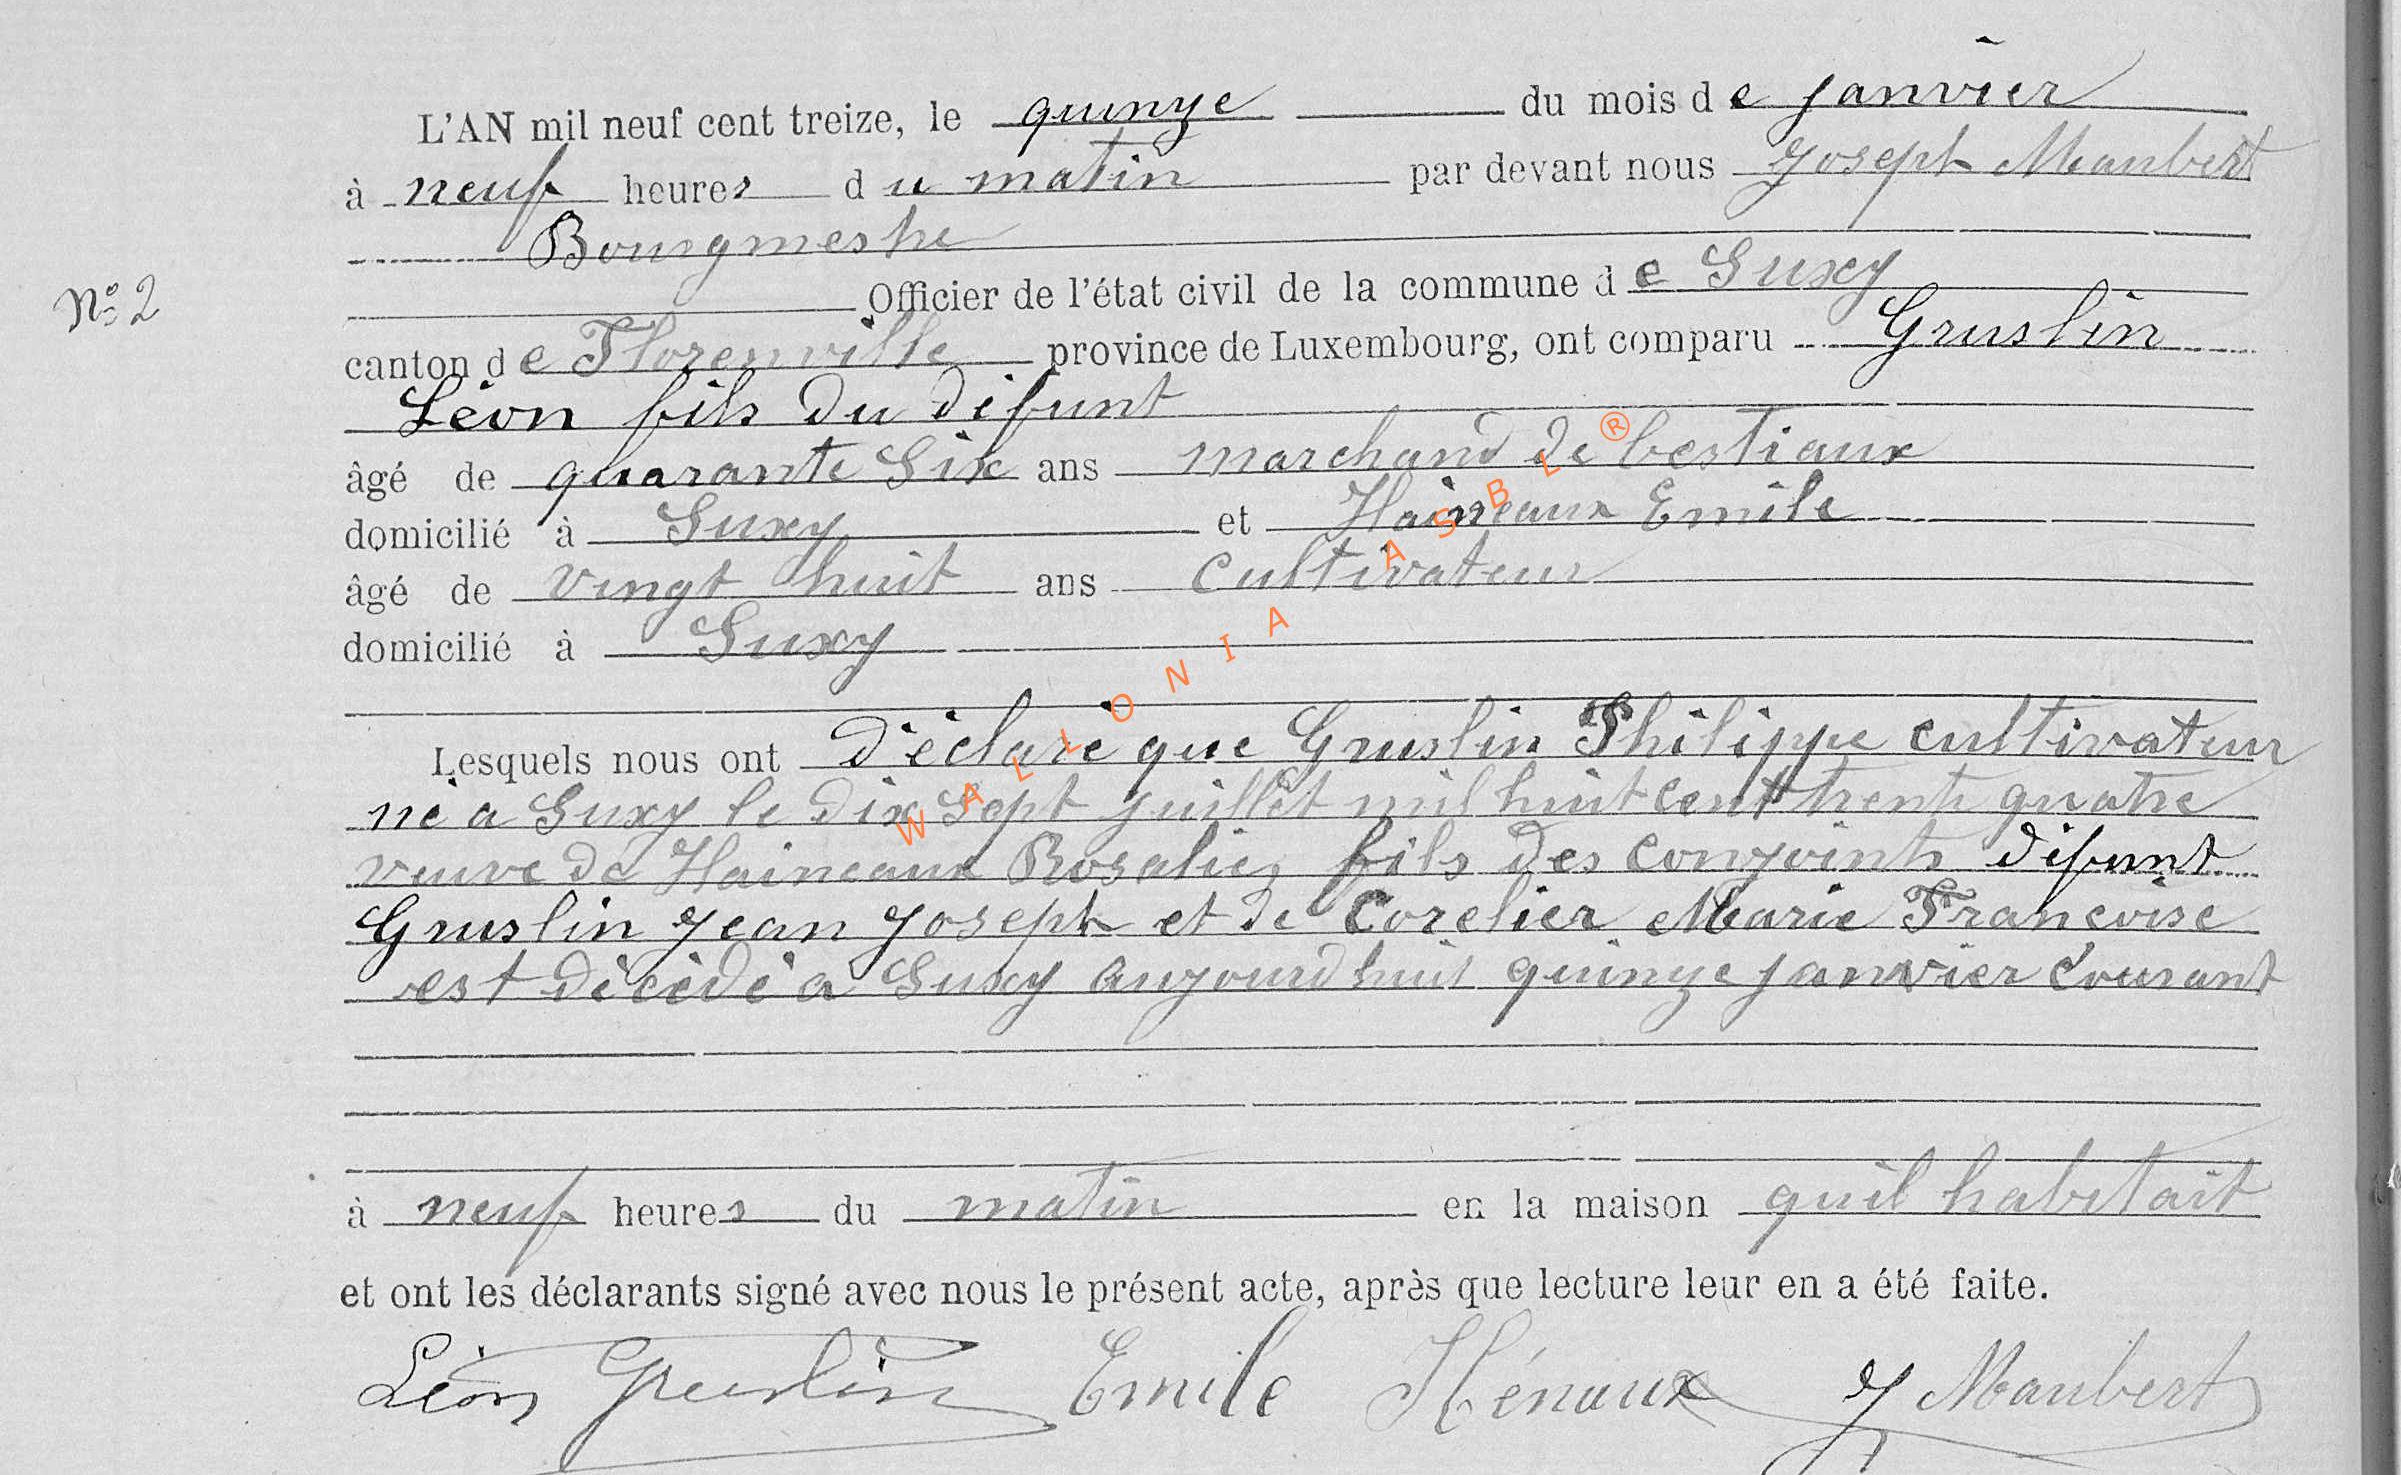 L'AN mil neuf cent treize, le quinze du mois de janvier
à neuf heures du matin par devant nous Joseph Maubert
Bourgmestre
Nº 2
Officier de l'état civil de la commune de Suxy
canton de Florenville province de Luxembourg, ont comparu Gruslin
Léon fils du défunt
âgé de quarante six ans marchand de bestiaux
domicilié à Suxy et Haineaux Emile
âgé de vingt huit ans cultivateur
domicilié à Suxy
Lesquels nous ont déclaré que Gruslin Philippe cultivateur
né a Suxy le dix sept juillet mil huit cent trente quatre
veuve de Haineaux Rosalie, fils des conjoints défunt
Gruslin Jean Joseph et de Corelier Marie Francoise
est décédé a Suxy aujourd huit quinze janvier courant
à neuf heures du matin en la maison quil habitait
et ont les déclarants signé avec nous le présent acte, après que lecture leur en a été faite.
Léon Gruslin Emile Hénaux J Maubert
WALLONIA ASBL ®